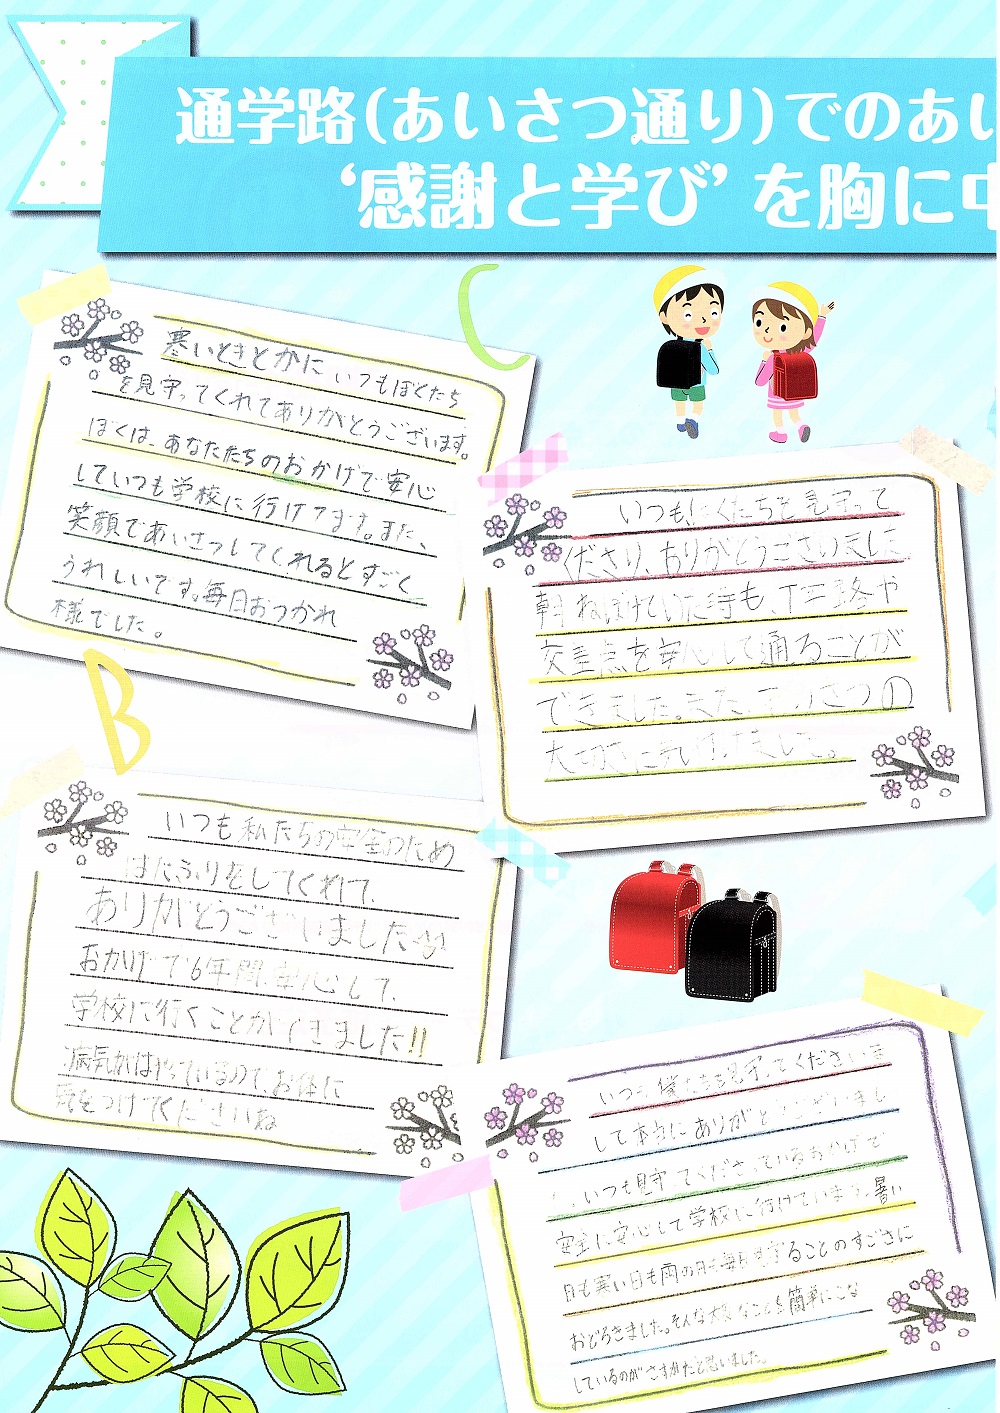 通学路（あいさつ通り）でのあい
‘感謝と学び’を胸に中
寒いときとかに いつもぼくたち
を見守ってくれてありがとうございます。
ぼくは、あなたたちのおかげで安心
していつも学校に行けてます。また、
笑顔であいさつしてくれるとすごく
うれしいです。毎日おつかれ
様でした。
C
いつもぼくたちを見守って
くださり、ありがとうございました
朝ねぼけていた時も丁字路や
交差点を安心して通ることが
できました。また、あいさつの
大切さに気付けました。
B
いつも私たちの安全のため
はたふりをしてくれて、
ありがとうございました
おかげで6年間、安心して、
学校に行くことができました!!
病気がはやっているので、お体に
気をつけてくださいね
いつも僕たちを見守ってくださいま
して本当にありがとうございまし
いつも見守ってくださっているおかげで
安全に安心して学校に行けています。暑い
日も寒い日も雨の日も毎日見守ることのすごさに
おどろきました。そんな大変なことを簡単にこな
しているのがさすがだと思いました。